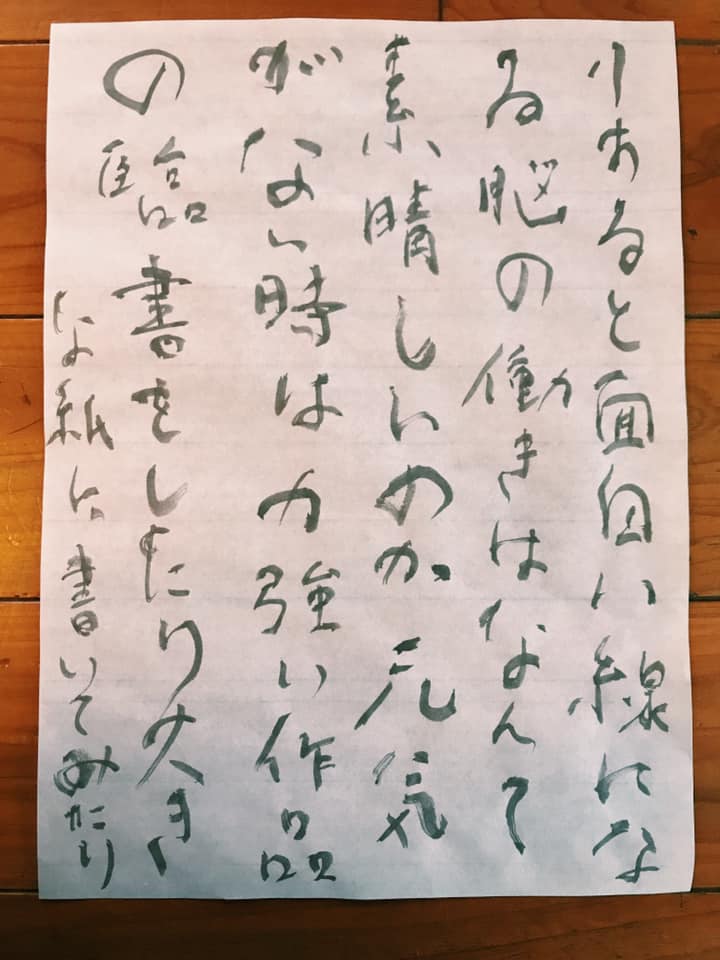 りあると面白い線にな
る脳の働きはなんて
素晴しいのか元気
がない時は力強い作品
の臨書をしたり大き
な紙に書いてみたり